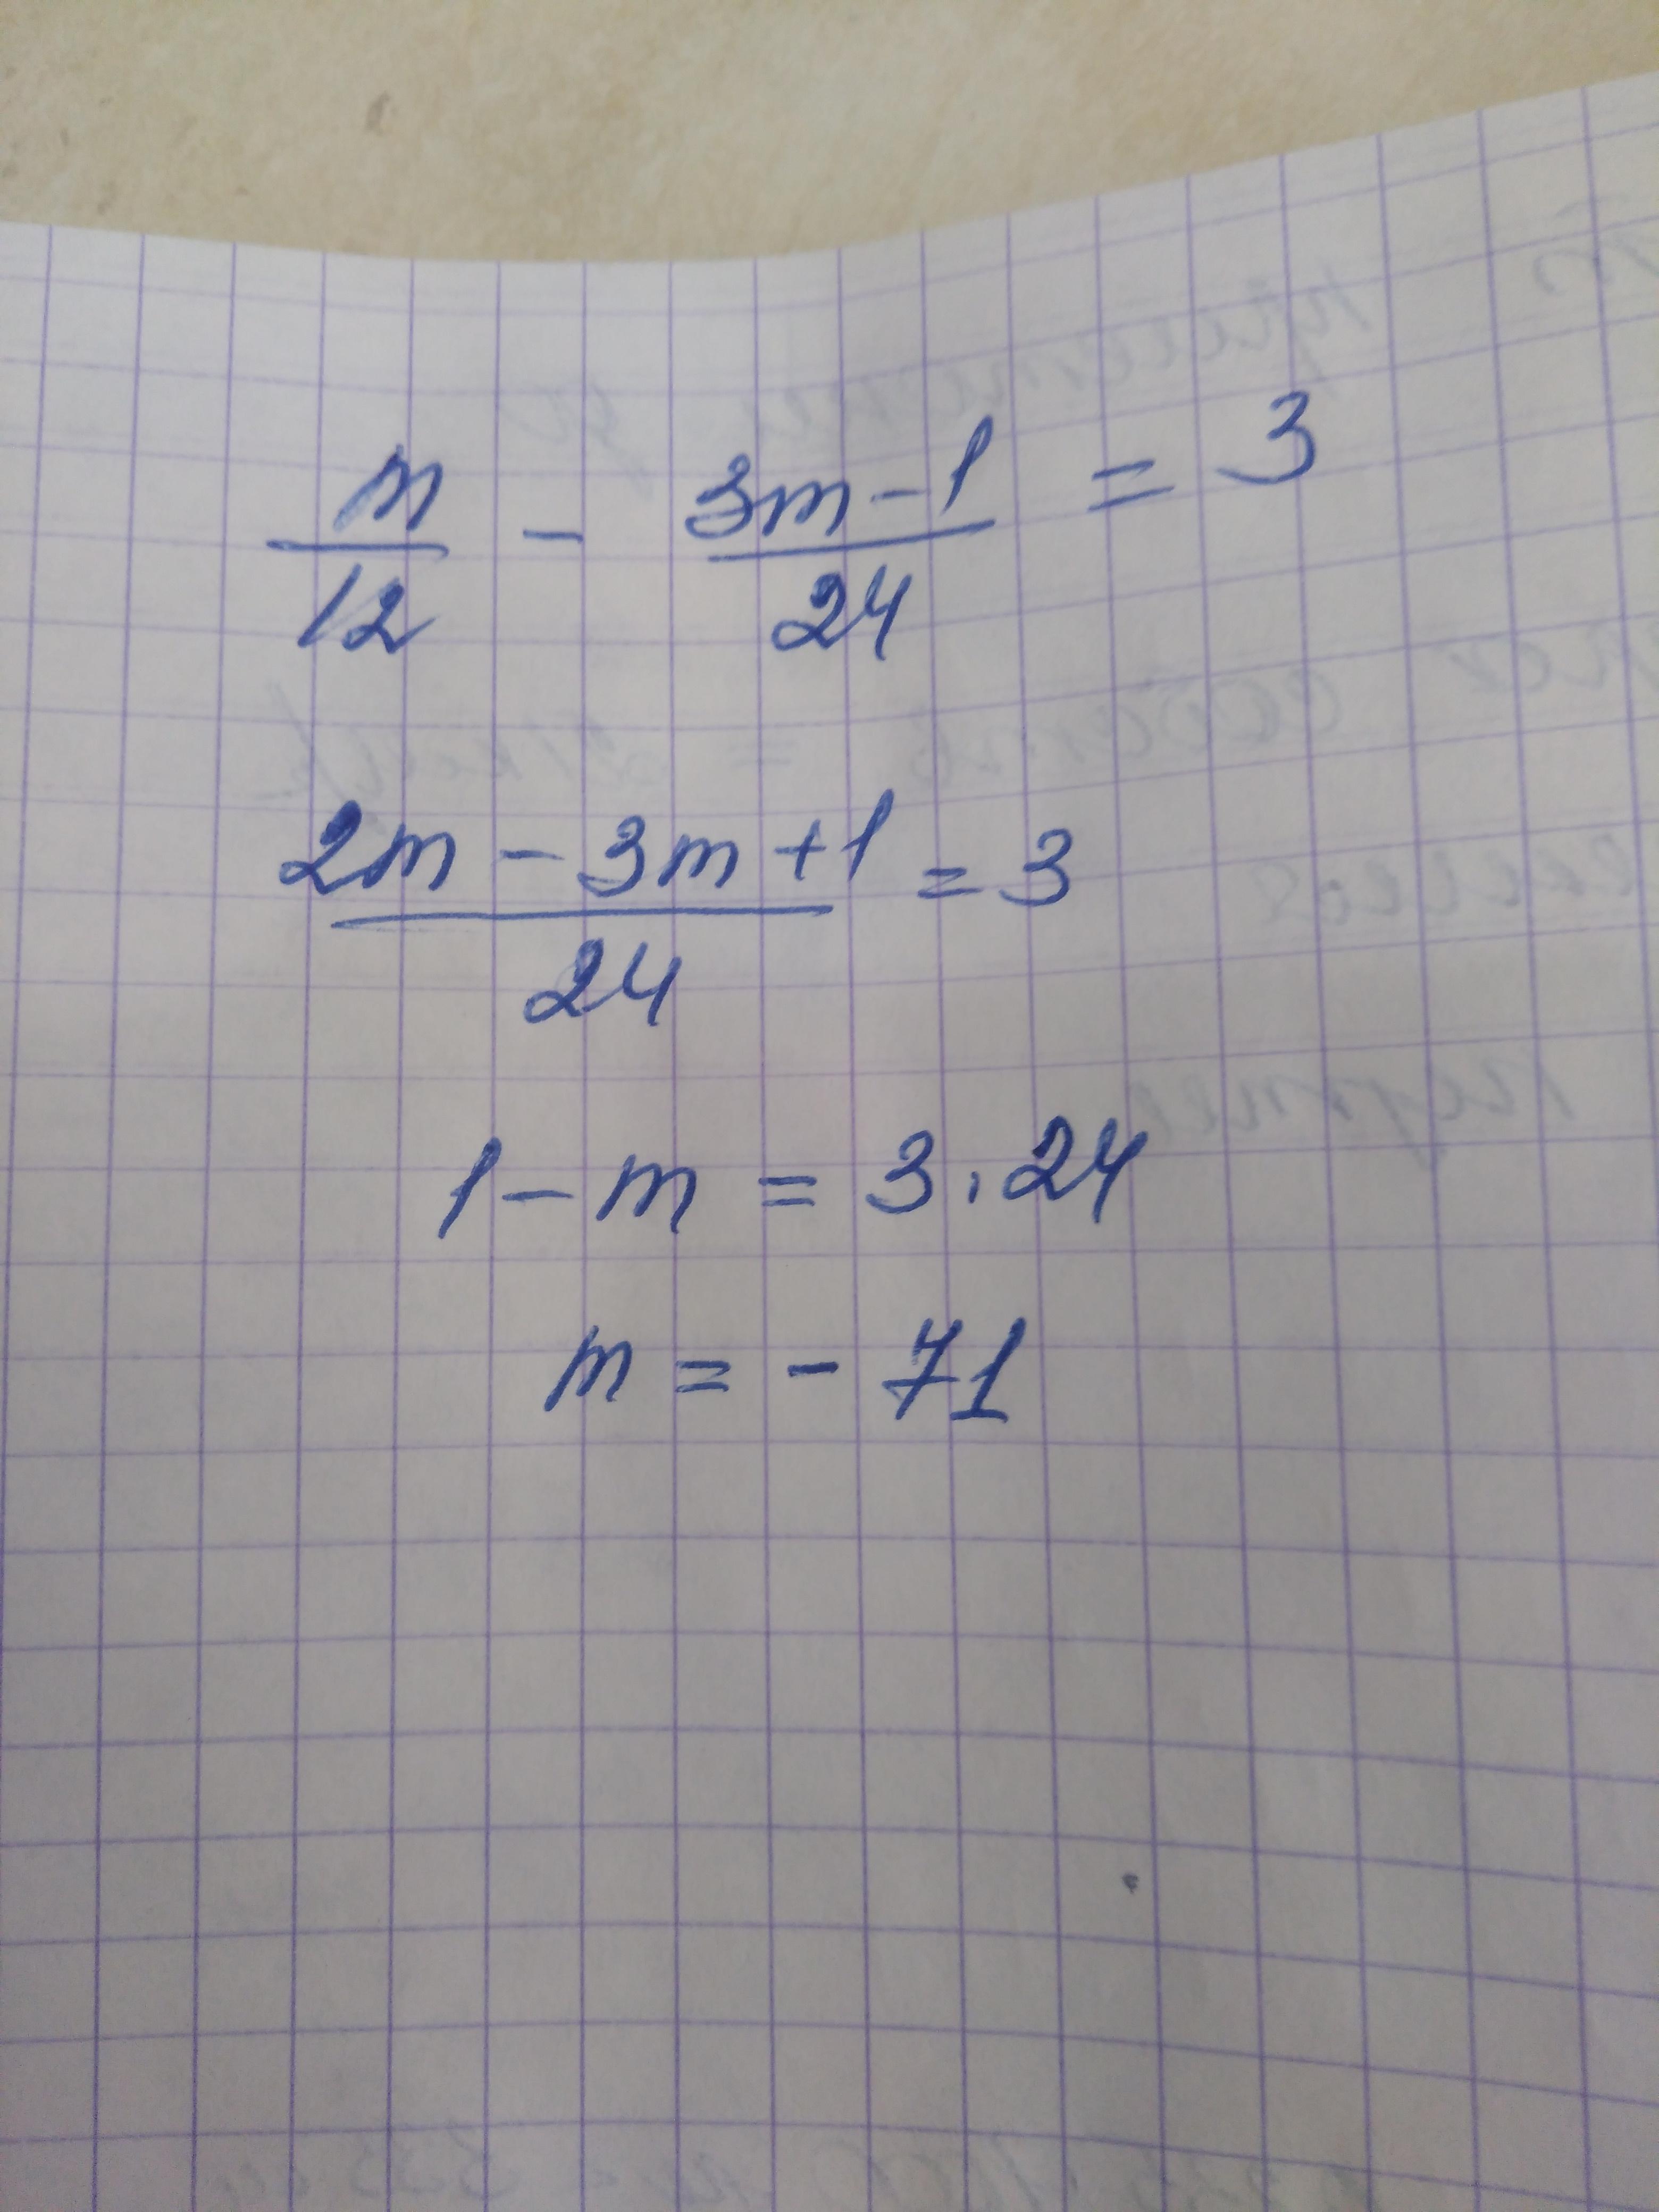 m/12 - (3m-1)/24 = 3
(2m - 3m + 1)/24 = 3
1 - m = 3 · 24
m = - 71